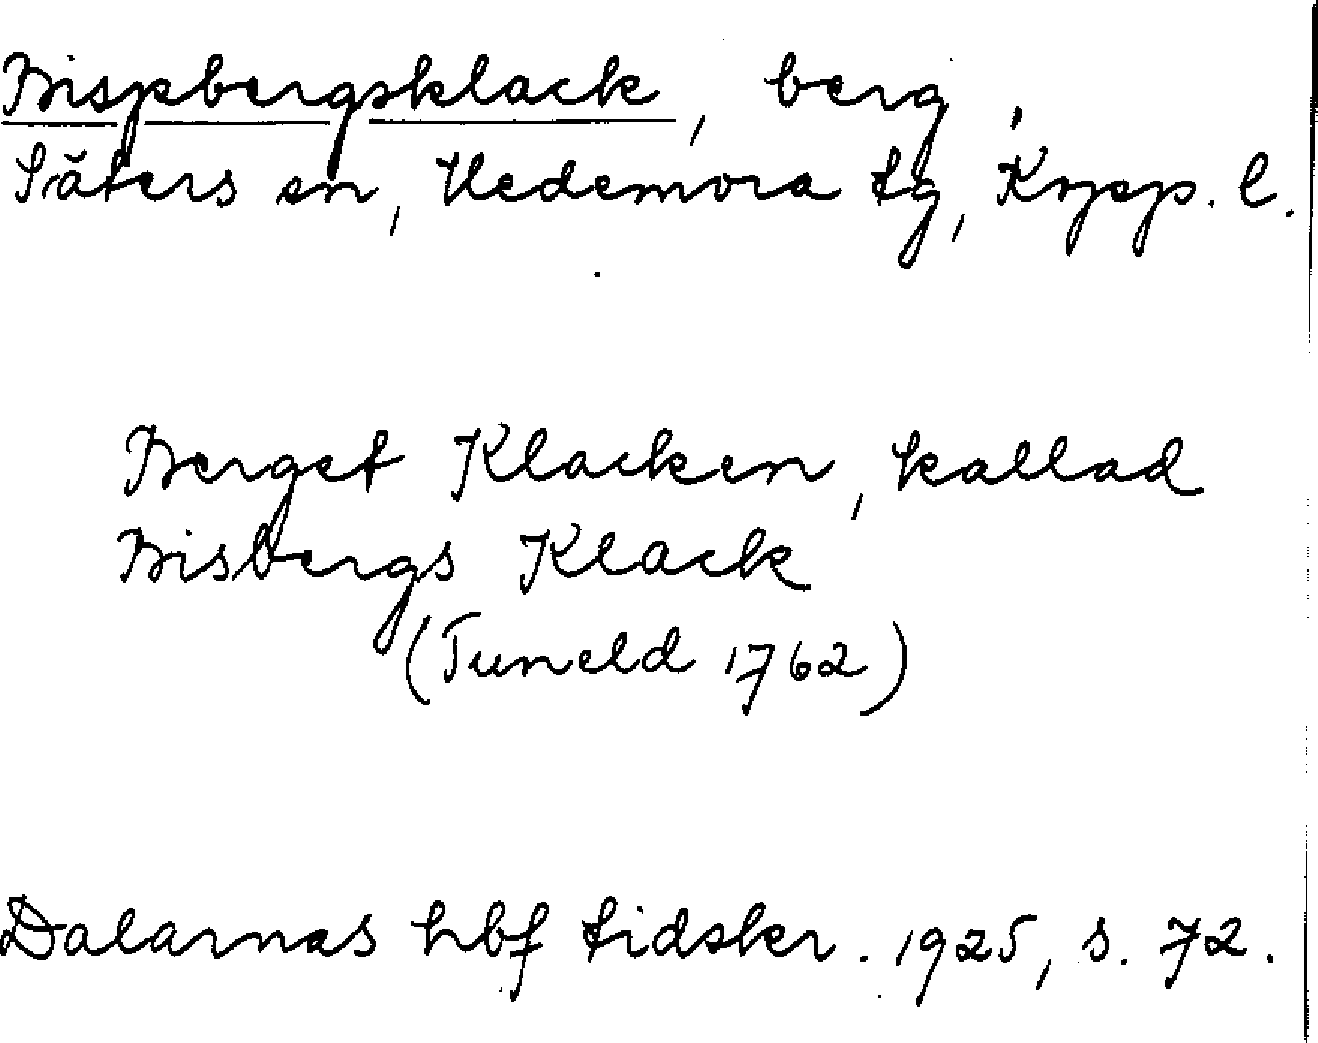 Bispbergsklack, berg,
Säters sn, Hedemora tg, Kopp. l.
Berget Klacken, kallad
Bisbergs Klack
(Tuneld 1762)
Dalarnas hbf tidskr. 1925, s. 72.